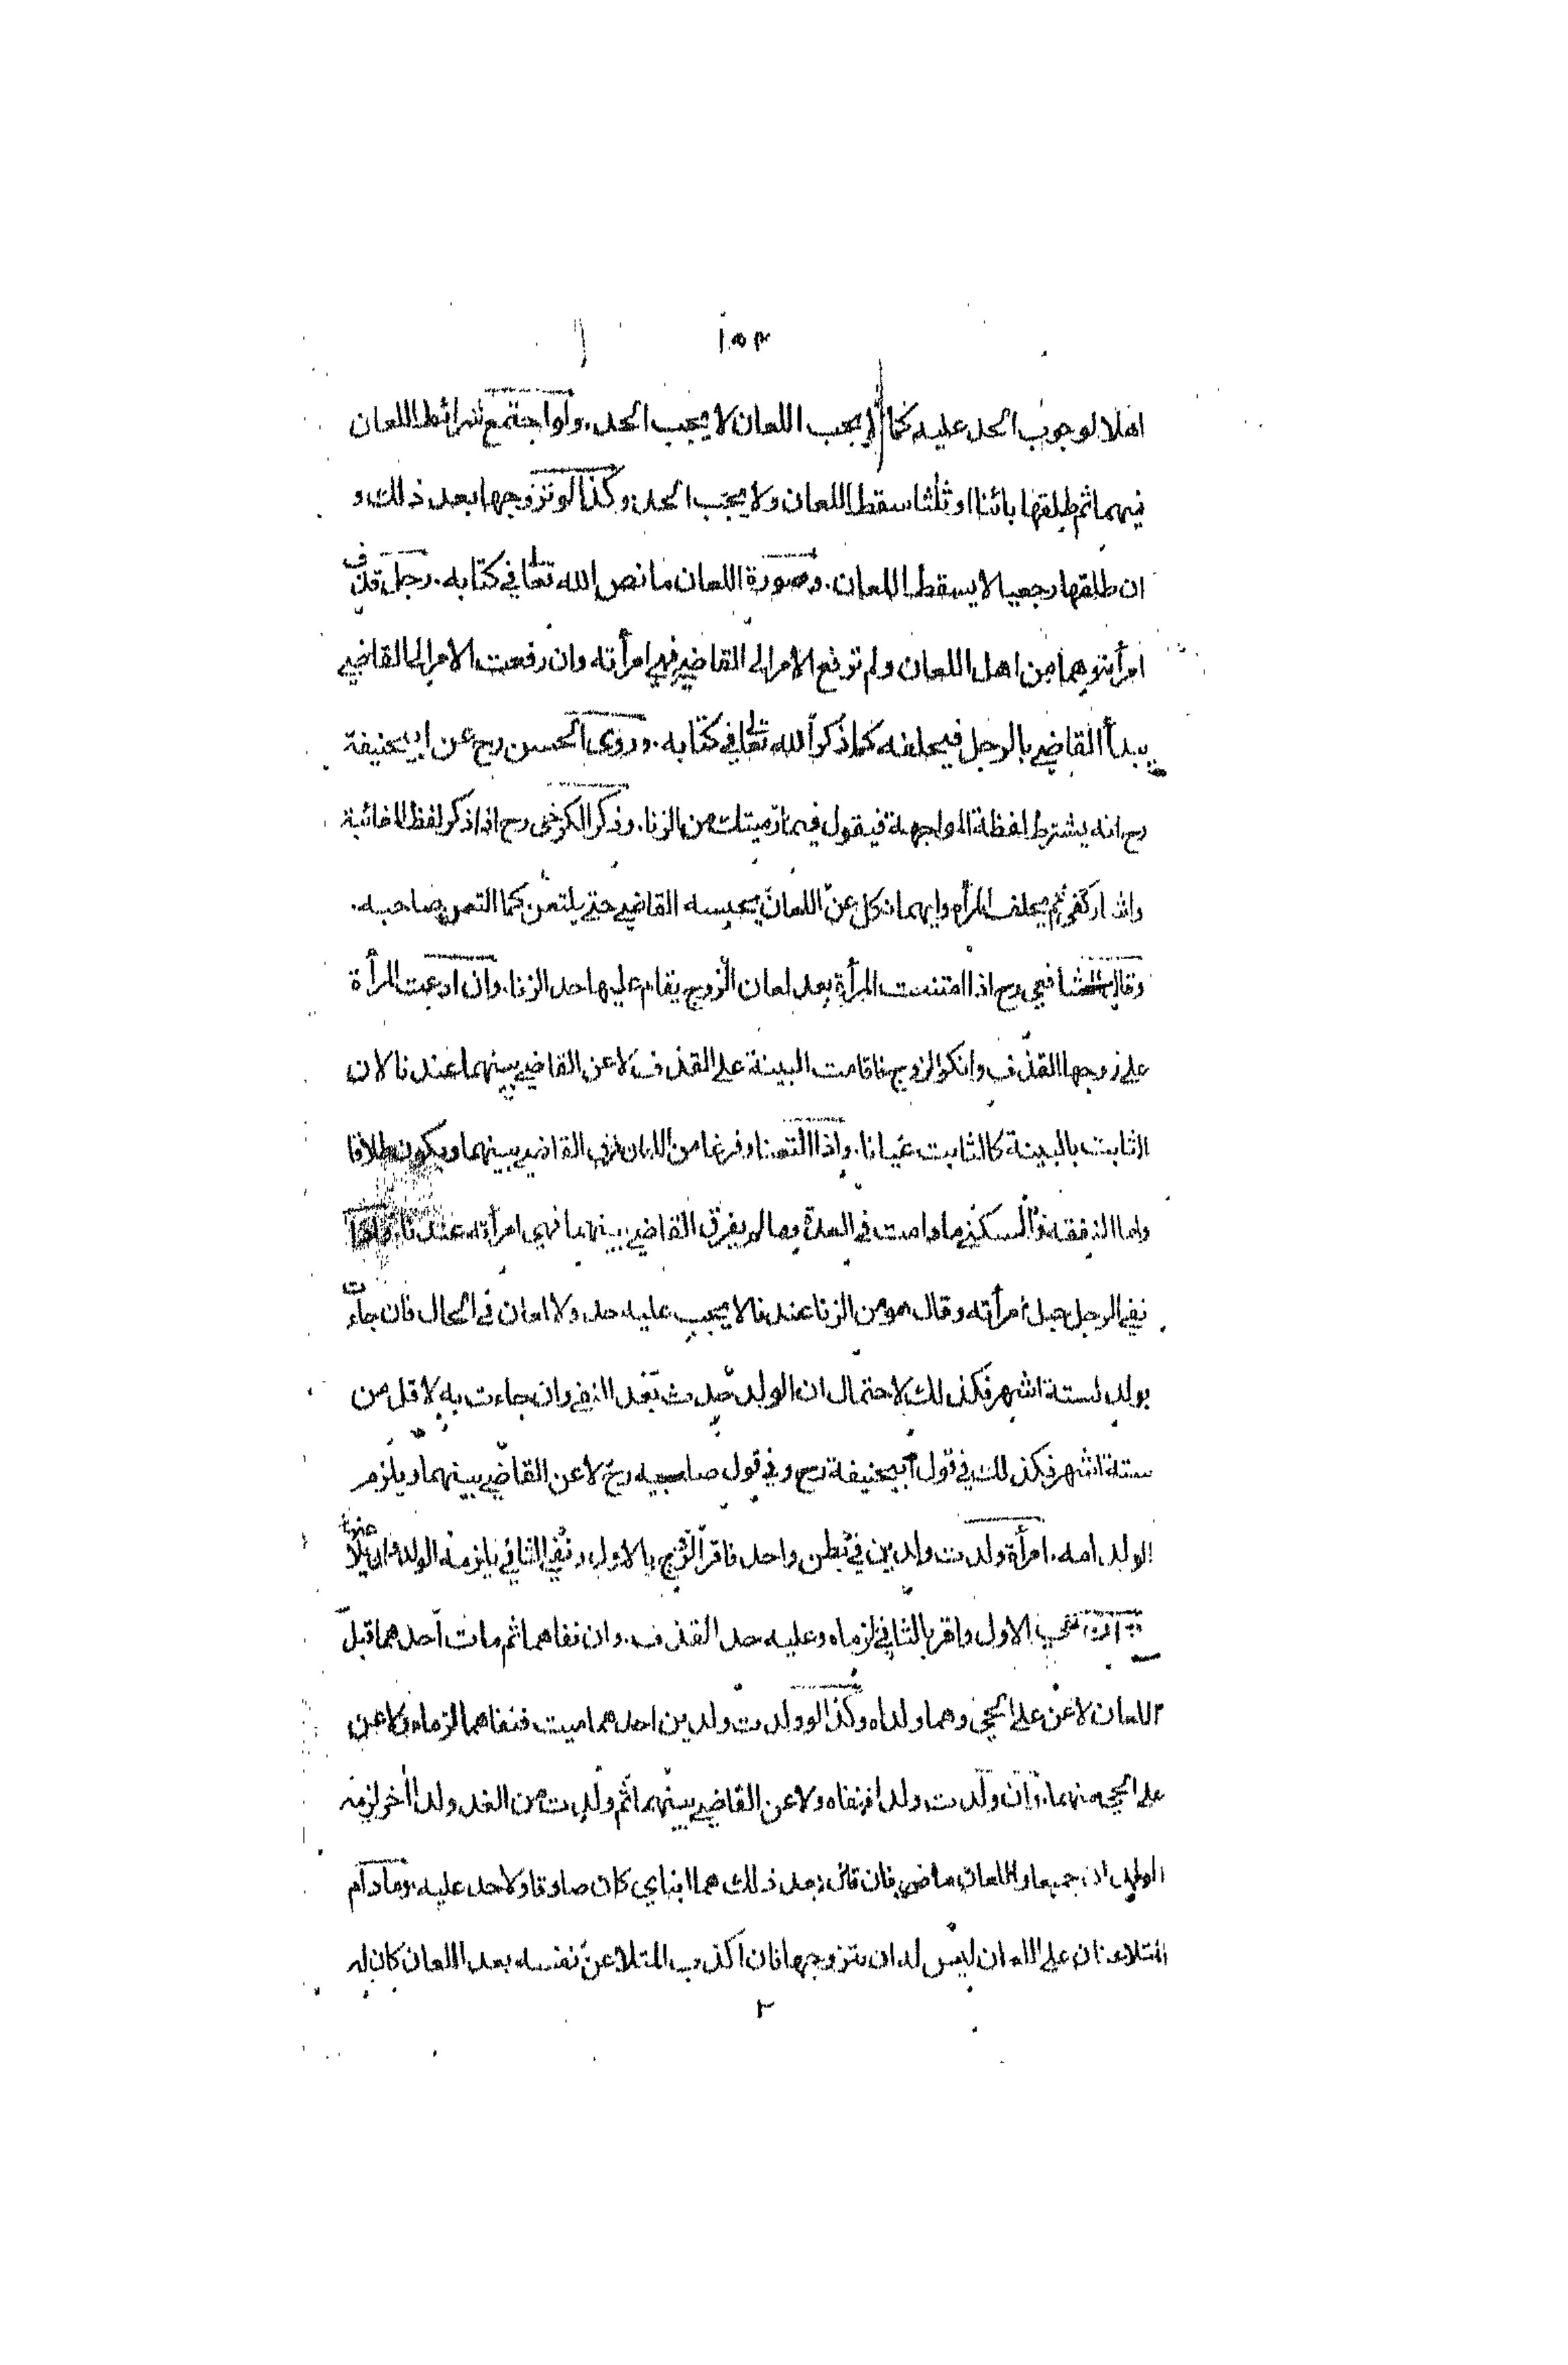 ١٥٣
اهلا لوجوب الحد عليه كما لا يجب اللعان لا يجب الحد. ولو اجتمع شرائط اللعان
فيهما ثم طلقها بائنا او ثلثا سقط اللعان ولا يجب الحد وكذا لو تزوجها بعد ذلك و
ان طلقها رجعيا لا يسقط اللعان. وصورة اللعان ما نص الله تعالى في كتابه. رجل قذف
امرأته وهما من اهل اللعان ولم ترفع الامر الى القاضي فهي امرأته وان رفعت الامر الى القاضي
يبدأ القاضي بالرجل فيحلفه كما ذكر الله تعالى في كتابه. وروى الحسن رح عن ابيحنيفة
رح انه يشترط لفظة المواجهة فيقول فيما رميتك من الزنا. وذكر الكرخي رح اذا ذكر لفظ الغائبة
واشار كفى ثم يحلف المرأة وايهما نكل عن اللعان يحبسه القاضي حتى يلتعن كما التعن صاحبه.
وقال الشافعي رح اذا امتنعت المرأة بعد لعان الزوج يقام عليها حد الزنا. وان ادعت المرأة
على زوجها القذف وانكر الزوج فاقامت البينة على القذف لاعن القاضي بينهما عندنا لان
الثابت بالبينة كالثابت عيانا. واذا التعنا وفرغا من اللعان فرق القاضي بينهما ويكون طلاقا
ولها النفقة والسكنى ما دامت في العدة وما لم يفرق القاضي بينهما فهي امرأته عندنا. واذا
نفى الرجل حبل امرأته وقال هو من الزنا عندنا لا يجب عليه حد ولا لعان في الحال فان جاءت
بولد لستة اشهر فكذلك لاحتمال ان الولد حدث بعد النفي وان جاءت به لاقل من
ستة اشهر فكذلك في قول ابيحنيفة رح وفي قول صاحبيه رح لاعن القاضي بينهما ويلزم
الولد امه. امرأة ولدت ولدين في بطن واحد فاقر الزوج بالاول ونفى الثاني يلزمه الولدان ويلاعنها
وان نفى الاول واقر بالثاني لزماه وعليه حد القذف. وان نفاهما ثم مات احدهما قبل
اللعان لاعن على الحي وهما ولداه وكذا لو ولدت ولدين احدهما ميت فنفاهما لزماه ولاعن
على الحي منهما. وان ولدت ولدا فنفاه ولاعن القاضي بينهما ثم ولدت من الغد ولدا آخر لزمه
الولدان جميعا واللعان ماض فان قال بعد ذلك هما ابناي كان صادقا ولا حد عليه. وما دام
المتلاعنان على اللعان ليس له ان يتزوجها فان اكذب المتلاعن نفسه بعد اللعان كان له
٢